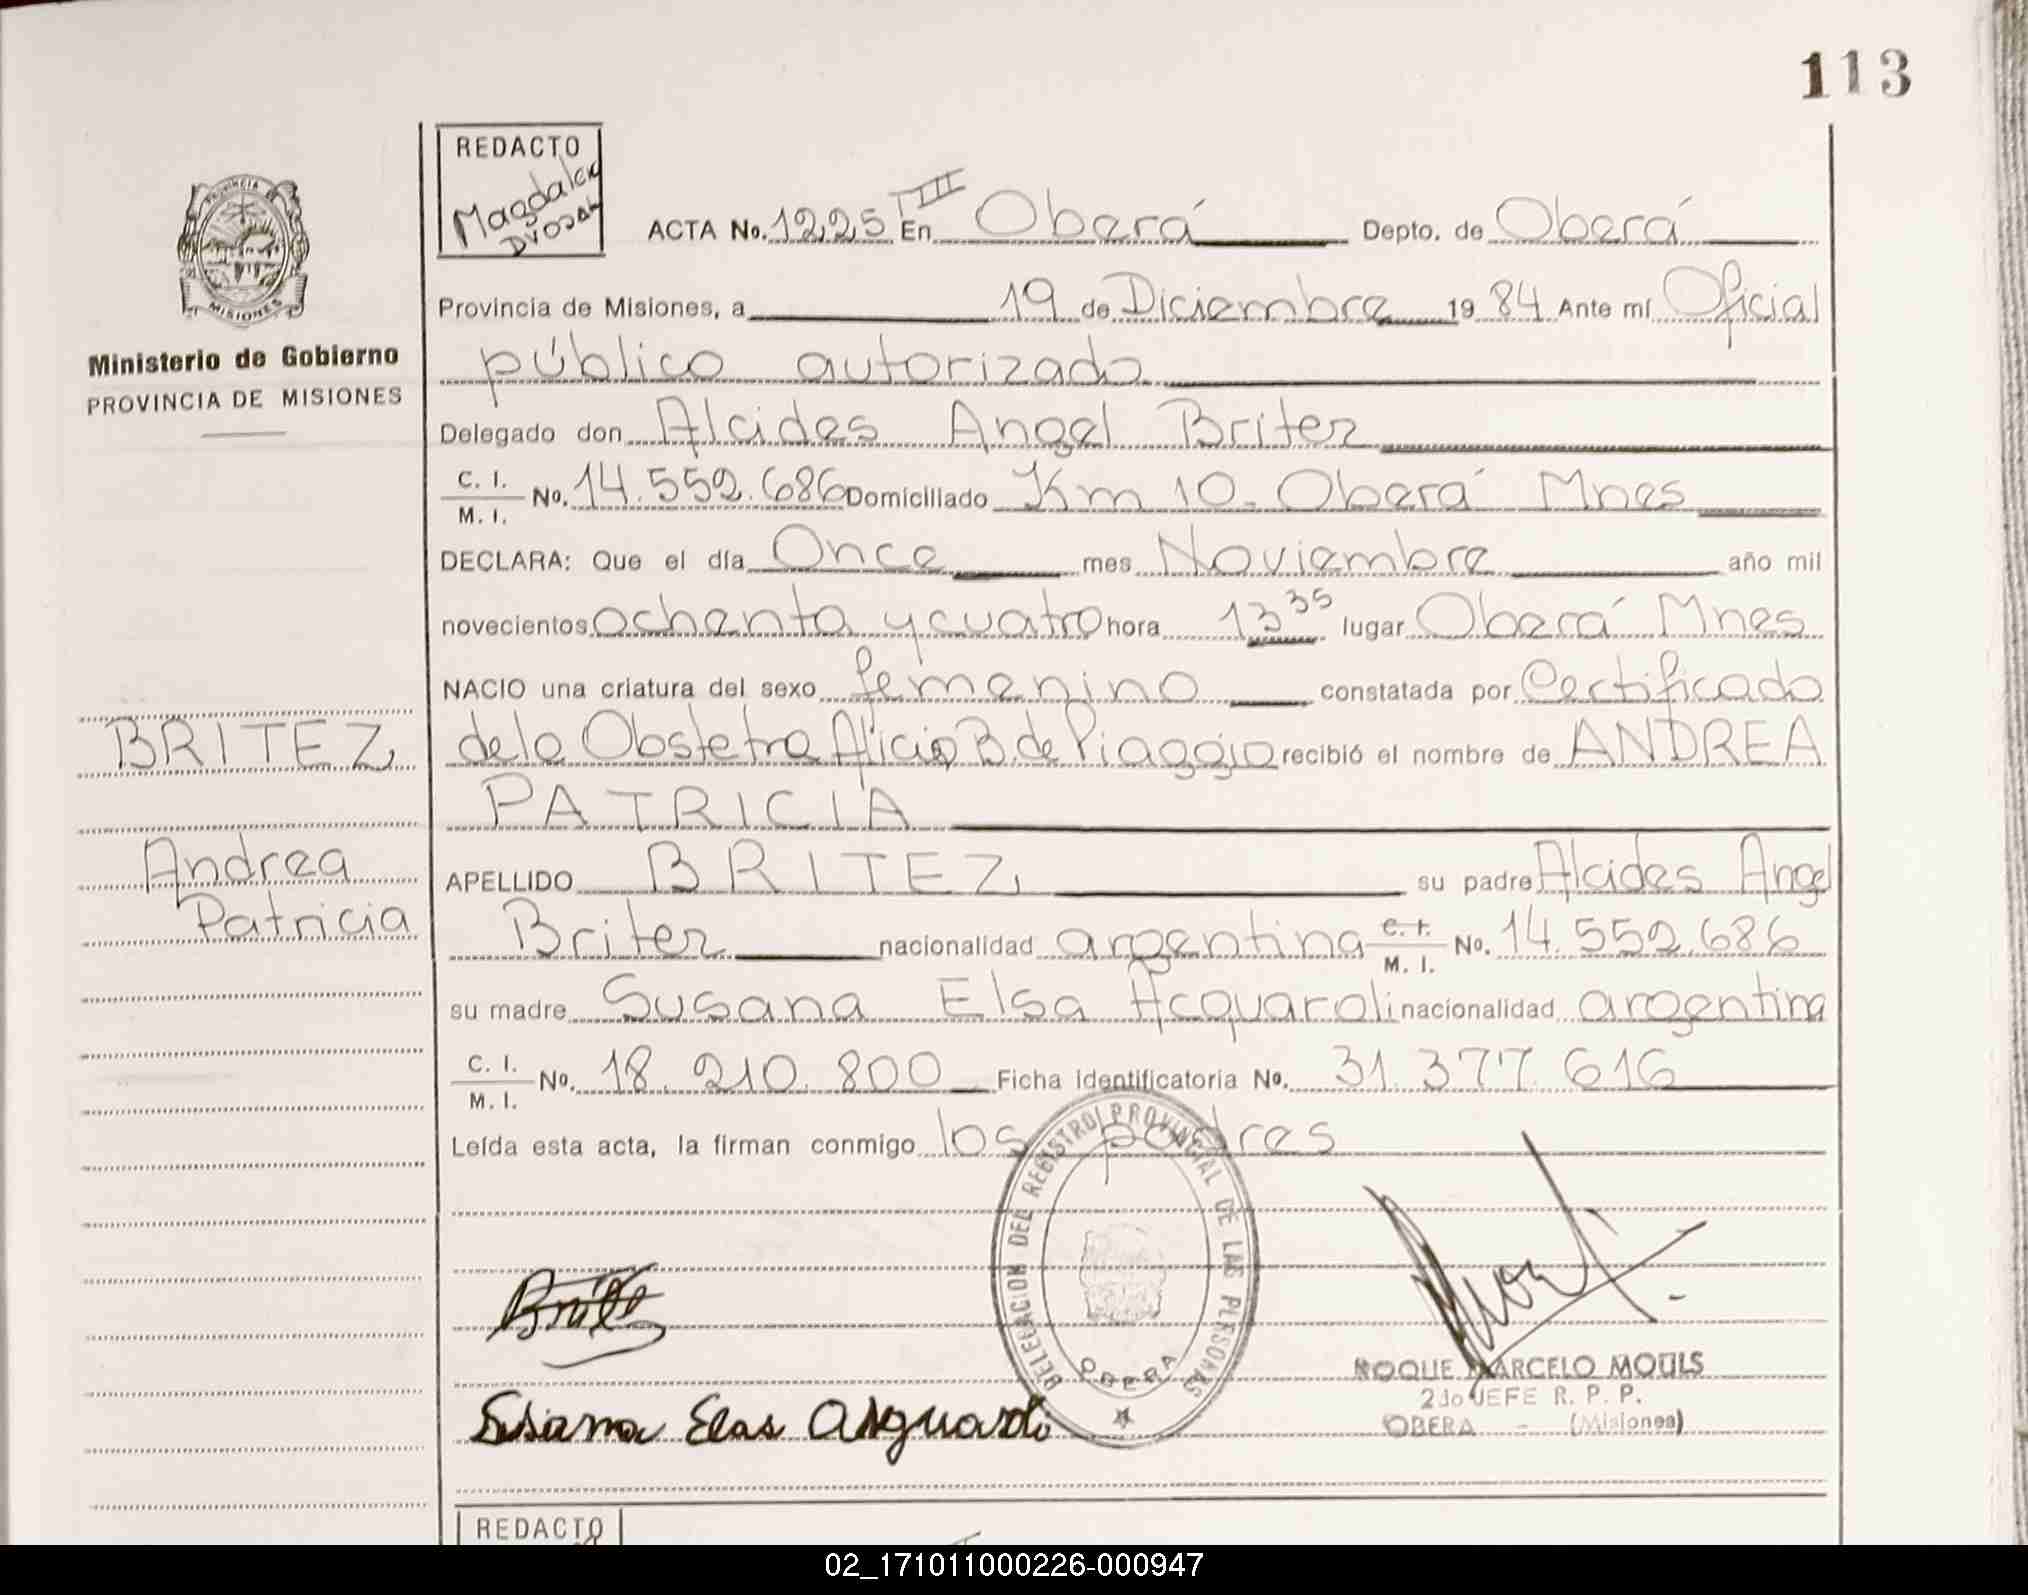 113
REDACTO
Magdalena
Dvorak
PROVINCIA
MISIONES
Ministerio de Gobierno
PROVINCIA DE MISIONES
ACTA No. 1225 TIII En Oberá Depto. de Oberá
Provincia de Misiones, a 19 de Diciembre 1984 Ante mí Oficial
público autorizado
Delegado don Alcides Angel Britez
C. I.
M. I. No. 14.552.686 Domiciliado Km 10. Oberá Mnes
DECLARA: Que el día Once mes Noviembre año mil
novecientos ochenta y cuatro hora 13 35 lugar Oberá Mnes
NACIO una criatura del sexo femenino constatada por Certificado
BRITEZ de la Obstetra Alicia B. de Piaggio recibió el nombre de ANDREA
PATRICIA
Andrea APELLIDO BRITEZ su padre Alcides Angel
Patricia Britez nacionalidad argentina C. I. M. I. No. 14.552.686
su madre Susana Elsa Acquaroli nacionalidad argentina
C. I.
M. I. No. 18.210.800 Ficha Identificatoria No. 31.377.616
Leída esta acta, la firman conmigo los padres
DELEGACION DEL REGISTRO PROVINCIAL DE LAS PERSONAS
OBERA
Britez
Susana Elsa
ROQUE MARCELO MOULS
2do JEFE R. P. P.
OBERA - (Misiones)
REDACTO
02_171011000226-000947